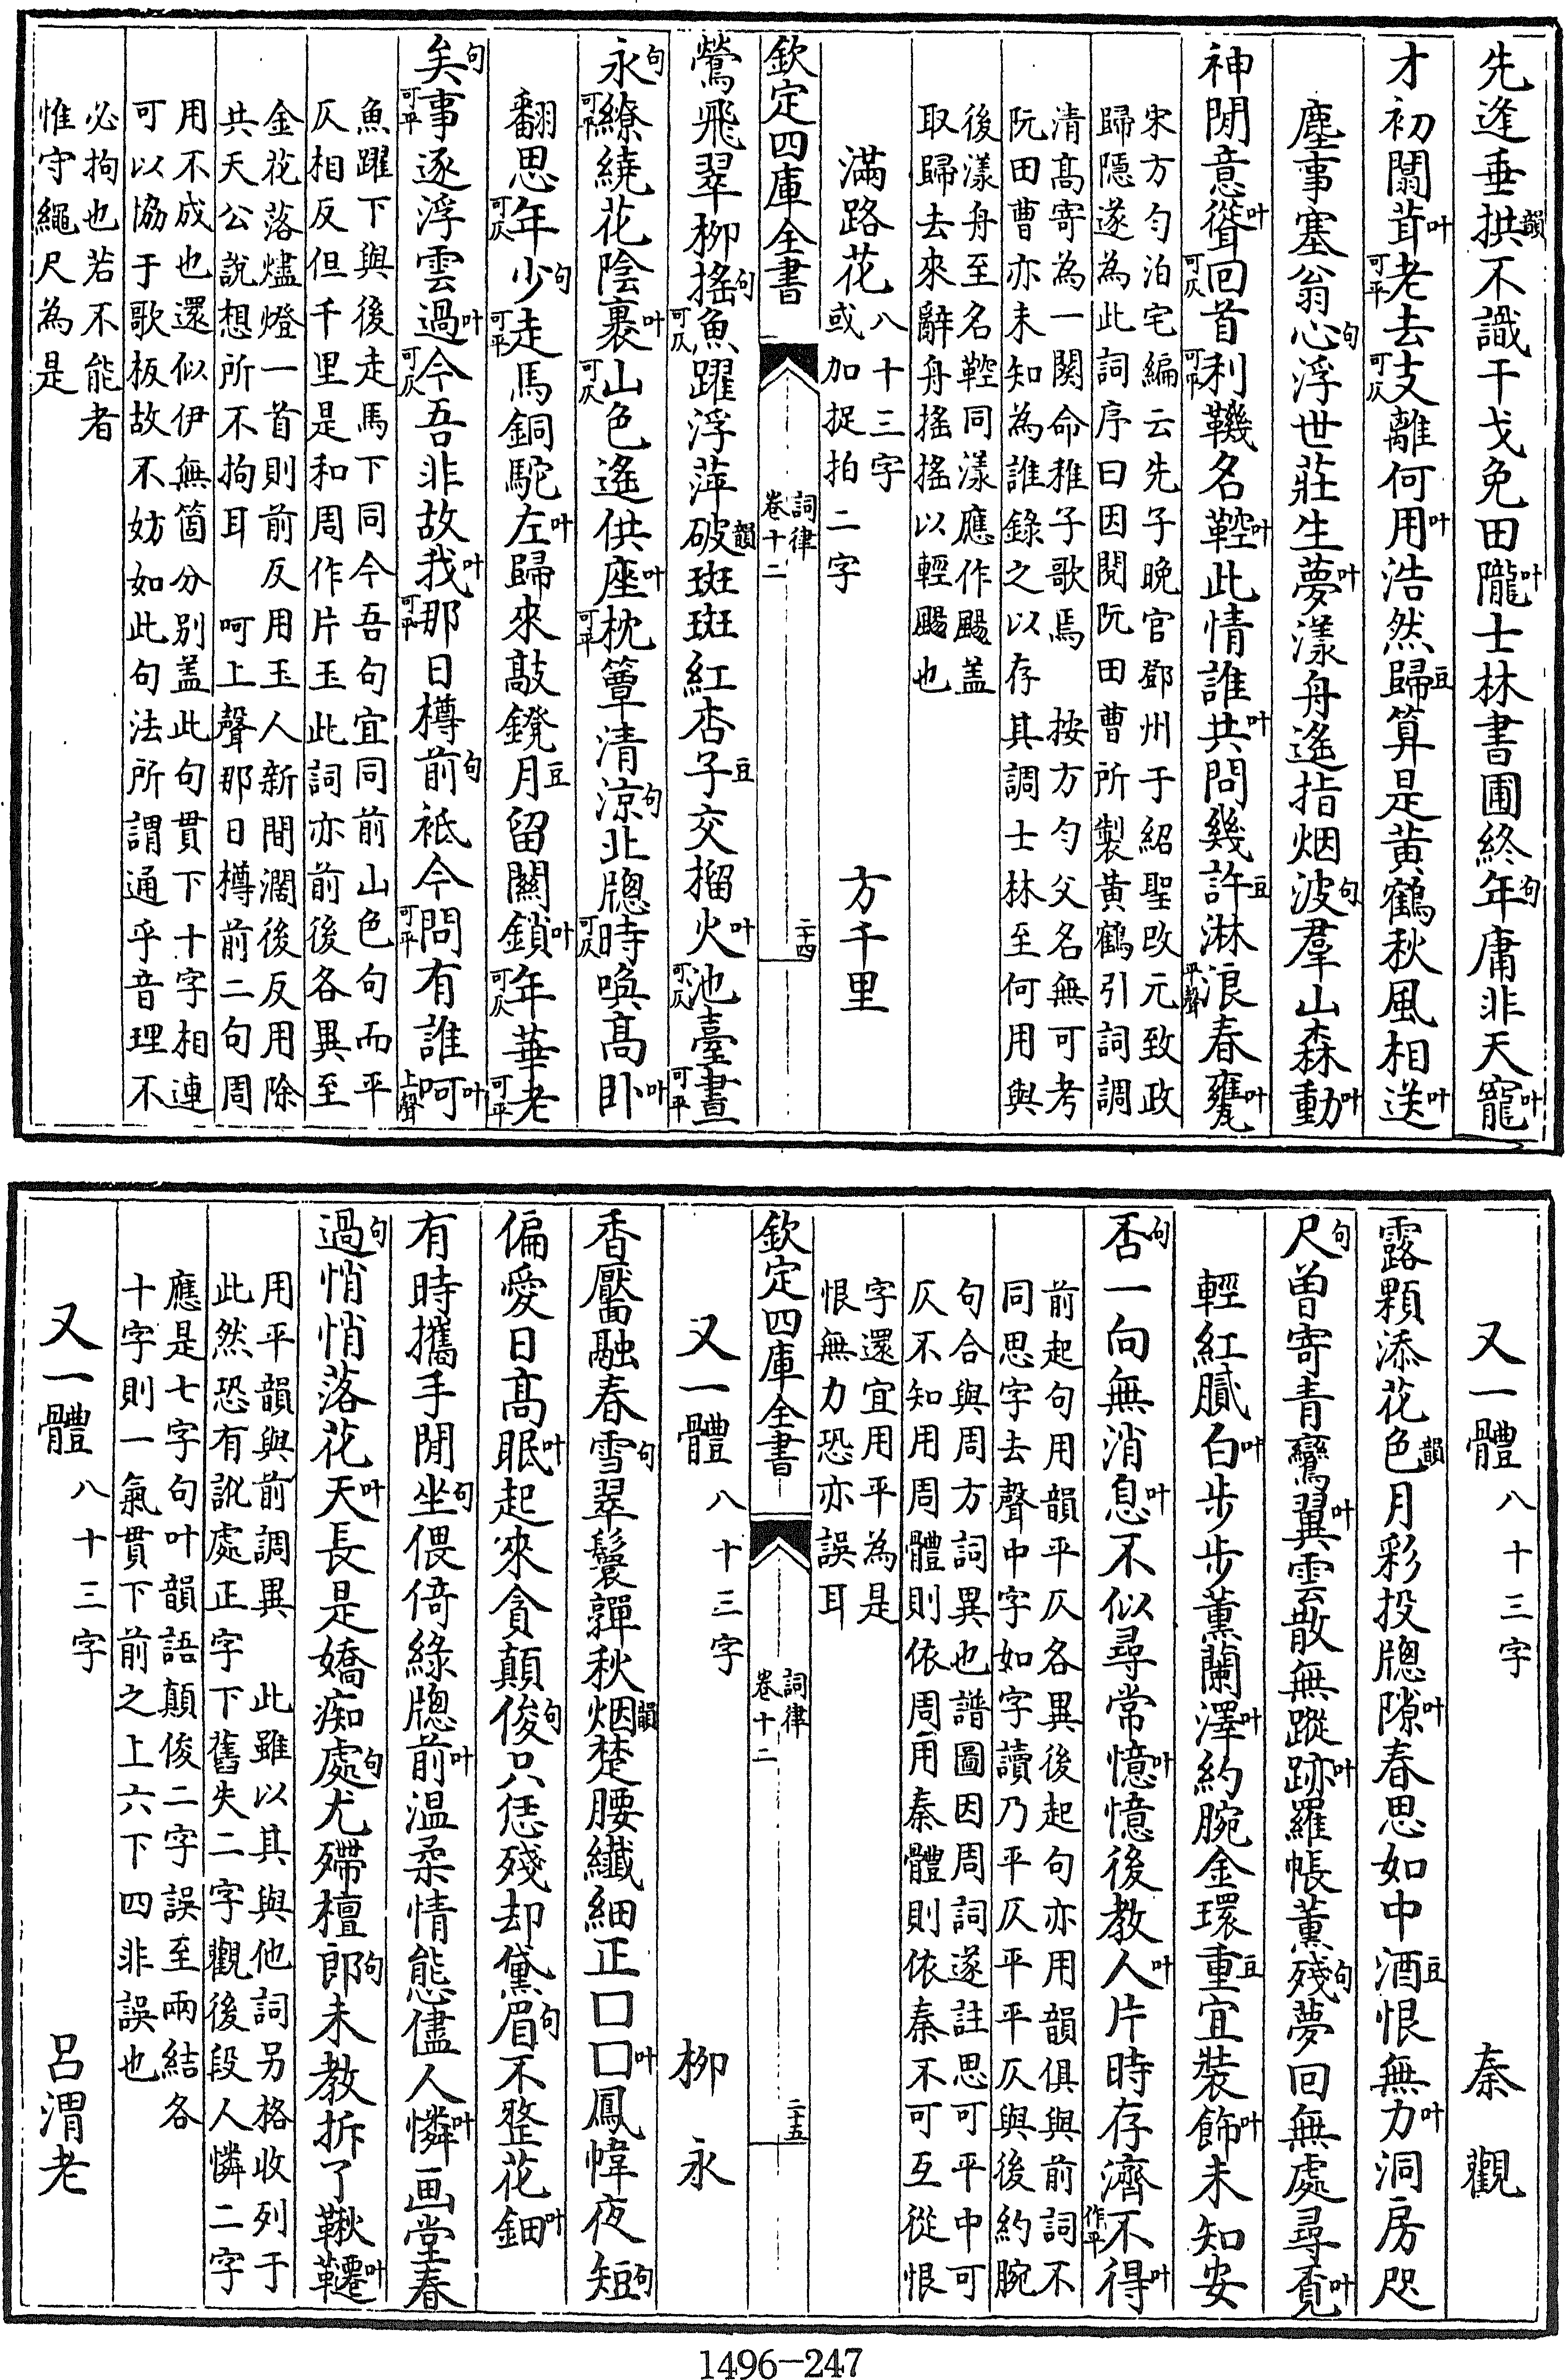 先逢垂拱韻不識干戈免田隴叶士林書圃終年句庸非天寵叶
才初闒茸叶老可平去支可仄離何用叶浩然歸豆算是黄鶴秋風相送叶
塵事塞翁心句浮世莊生夢叶漾舟遙指烟波句羣山森動叶
神閒意聳叶回可仄首利可平鞿名鞚叶此情誰共叶問幾許豆淋浪平聲春甕叶
宋方勺泊宅編云先子晚官鄧州于紹聖改元致政
歸隱遂為此詞序曰因閱阮田曹所製黄鶴引詞調
清高寄為一闋命稚子歌焉　按方勺父名無可考
阮田曹亦未知為誰錄之以存其調士林至何用與
後漾舟至名鞚同漾應作颺盖
取歸去來辭舟搖搖以輕颺也
滿路花八十三字或加捉拍二字　方千里
欽定四庫全書　詞律卷十二　二十四
鶯飛翠柳搖句魚可仄躍浮萍破韻斑斑紅杏子豆交榴火叶池可仄臺晝可平
永句繚可平繞花陰裏叶山可仄色遙供座叶枕可平簟清涼句北牕時可仄喚高卧叶
翻思年可仄少句走可平馬銅駝左叶歸來敲鐙月豆留關鎖叶年可仄華老可平
矣句事可平逐浮雲過叶今可仄吾非故我叶那可平日樽前句祇今問可平有誰呵上聲叶
魚躍下與後走馬下同今吾句宜同前山色句而平
仄相反但千里是和周作片玉此詞亦前後各異至
金花落燼燈一首則前反用玉人新間濶後反用除
共天公說想所不拘耳　呵上聲那日樽前二句周
用不成也還似伊無箇分别盖此句貫下十字相連
可以協于歌板故不妨如此句法所謂通乎音理不
必拘也若不能者
惟守繩尺為是
又一體八十三字　秦觀
露顆添花色韻月彩投牕隙叶春思如中酒豆恨無力叶洞房咫
尺句曽寄青鸞翼叶雲散無蹤跡叶羅帳薰殘句夢回無處尋覓叶
輕紅膩白叶步步薰蘭澤叶約腕金環重豆宜裝飾叶未知安
否句一向無消息叶不似尋常憶叶憶後教人叶片時存濟不作平得叶
前起句用韻平仄各異後起句亦用韻俱與前詞不
同思字去聲中字如字讀乃平仄平平仄與後約腕
句合與周方詞異也譜圖因周詞遂註思可平中可
仄不知用周體則依周用秦體則依秦不可互從恨
字還宜用平為是
恨無力恐亦誤耳
欽定四庫全書　詞律卷十二　二十五
又一體八十三字　柳永
香靨融春雪句翠鬟嚲秋烟韻楚腰纖細正囗囗叶鳳幃夜短句
偏愛日高眠叶起來貪顛俊句只恁殘却黛眉句不整花鈿叶
有時攜手閒坐句偎倚綠牕前叶温柔情態儘人憐叶画堂春
過句悄悄落花天叶長是嬌痴處句尤殢檀郎句未教拆了鞦韆叶
用平韻與前調異　此雖以其與他詞另格收列于
此然恐有訛處正字下舊失二字觀後段人憐二字
應是七字句叶韻語顛俊二字誤至兩結各
十字則一氣貫下前之上六下四非誤也
又一體八十三字　吕渭老
1496-247